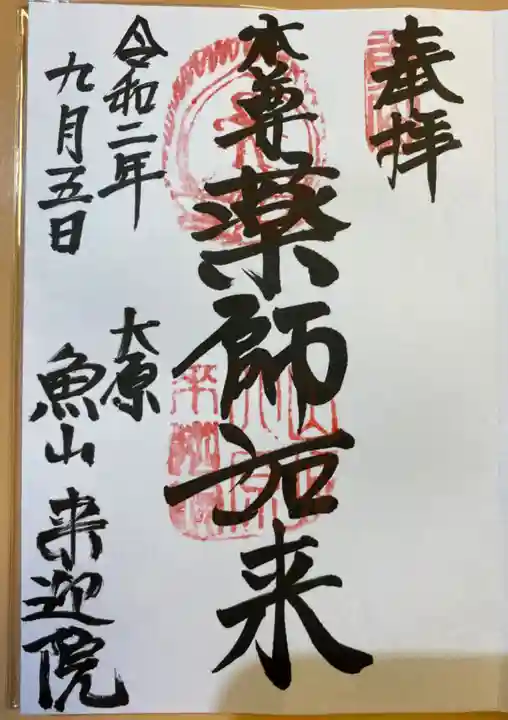 奉拝
本尊薬師如来
令和二年
九月五日
大原
魚山来迎院